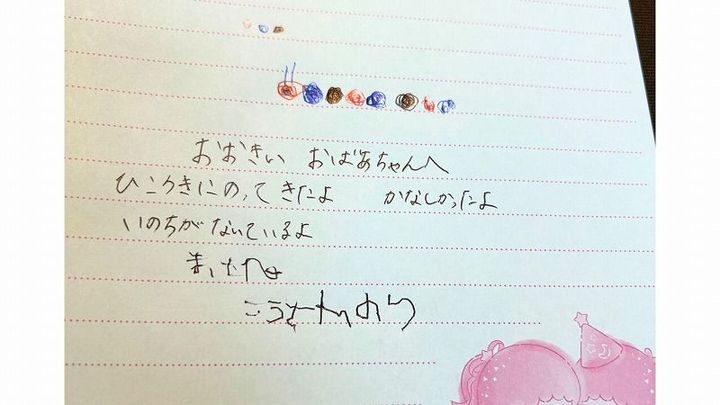 おおきい おばあちゃんへ
ひこうきにのってきたよ かなしかったよ
いのちがないているよ
こうたより